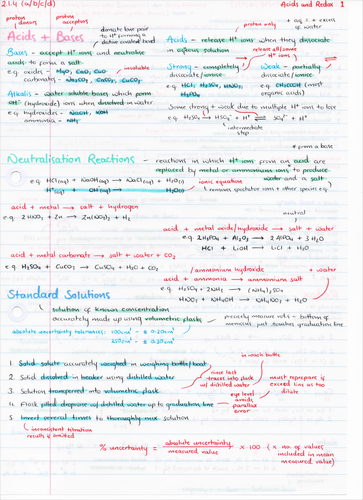 2.1.4 (a/b/c/d)
Acids and Redox 1
proton donors
proton acceptors
Acids + Bases
donate lone pair to H⁺ forming a dative covalent bond
proton only
+ aq. I = excess of water
Bases - accept H⁺ ions and neutralise acids to form a salt
e.g. oxides - MgO, CaO, CuO
insoluble
carbonates - Na₂CO₃, CaCO₃, CuCO₃
Alkalis - water soluble bases which form OH⁻ (hydroxide) ions when dissolved in water
e.g. hydroxides - NaOH, KOH
ammonia - NH₃
Acids - release H⁺ ions when they dissociate in aqueous solution
release all/some H⁺ ions
Strong - completely dissociate/ionise
e.g. HCl, H₂SO₄, HNO₃, H₃PO₄
Weak - partially dissociate/ionise
e.g. CH₃COOH (most organic acids)
Some strong + weak due to multiple H⁺ ions to lose
e.g. H₂SO₄ → HSO₄⁻ + H⁺ ⇌ SO₄²⁻ + H⁺
intermediate step
* from a base
Neutralisation Reactions - reactions in which H⁺ ions from an acid are replaced by metal or ammonium ions to produce water and a salt
e.g. HCl(aq) + NaOH(aq) → NaCl(aq) + H₂O(l)
ionic equation
H⁺(aq) + OH⁻(aq) → H₂O(l)
(removes spectator ions + other species)
acid + metal → salt + hydrogen
e.g. 2HNO₃ + Zn → Zn(NO₃)₂ + H₂
neutral
acid + metal oxide/hydroxide → salt + water
e.g. 2H₃PO₄ + Al₂O₃ → 2AlPO₄ + 3H₂O
HCl + LiOH → LiCl + H₂O
acid + metal carbonate → salt + water + CO₂
e.g. H₂SO₄ + CuCO₃ → CuSO₄ + H₂O + CO₂
/ammonium hydroxide
+ water
acid + ammonia → ammonium salt
e.g. H₂SO₄ + 2NH₃ → (NH₄)₂SO₄
HNO₃ + NH₄OH → NH₄NO₃ + H₂O
Standard Solutions
solution of known concentration accurately made up using volumetric flasks
precisely measure vols - bottom of meniscus just touches graduation line
absolute uncertainty tolerances: 100cm³ - ± 0.20cm³
250cm³ - ± 0.30cm³
1. Solid solute accurately weighed in weighing bottle/boat
2. Solid dissolved in beaker using distilled water
3. Solution transferred into volumetric flask
4. Flask filled dropwise w/ distilled water up to graduation line
5. Invert several times to thoroughly mix solution
rinse last traces into flask w/ distilled water
eye level avoids parallax error
inconsistent titration results if omitted
% uncertainty = absolute uncertainty / measured value × 100 (× no. of values included in mean measured value)